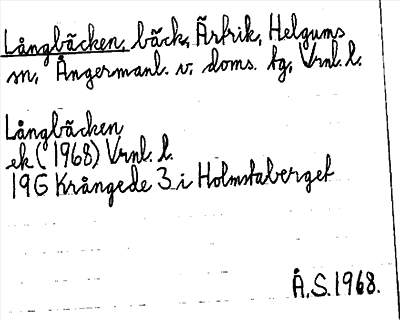 Långbäcken, bäck, Ärfrik, Helgums
sn, Ångermanl. v. doms. tg, Vrnl. l.
Långbäcken
ek (1968) Vrnl. l.
19G Krångede 3 i Holmstaberget
Å.S. 1968.